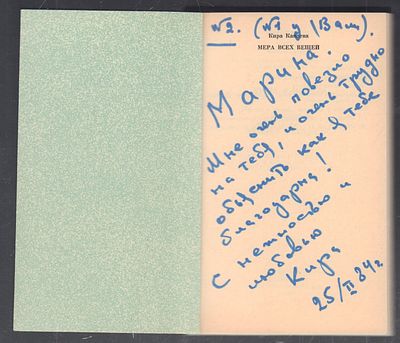 №2. (№1 у Вам).
Кира
МЕРА ВСЕХ ВЕЩЕЙ
Марина!
Мне очень повезло
на тебя, и очень трудно
объяснить как я тебе
благодарна!
С нежностью и
любовью
Кира
25/II 84г